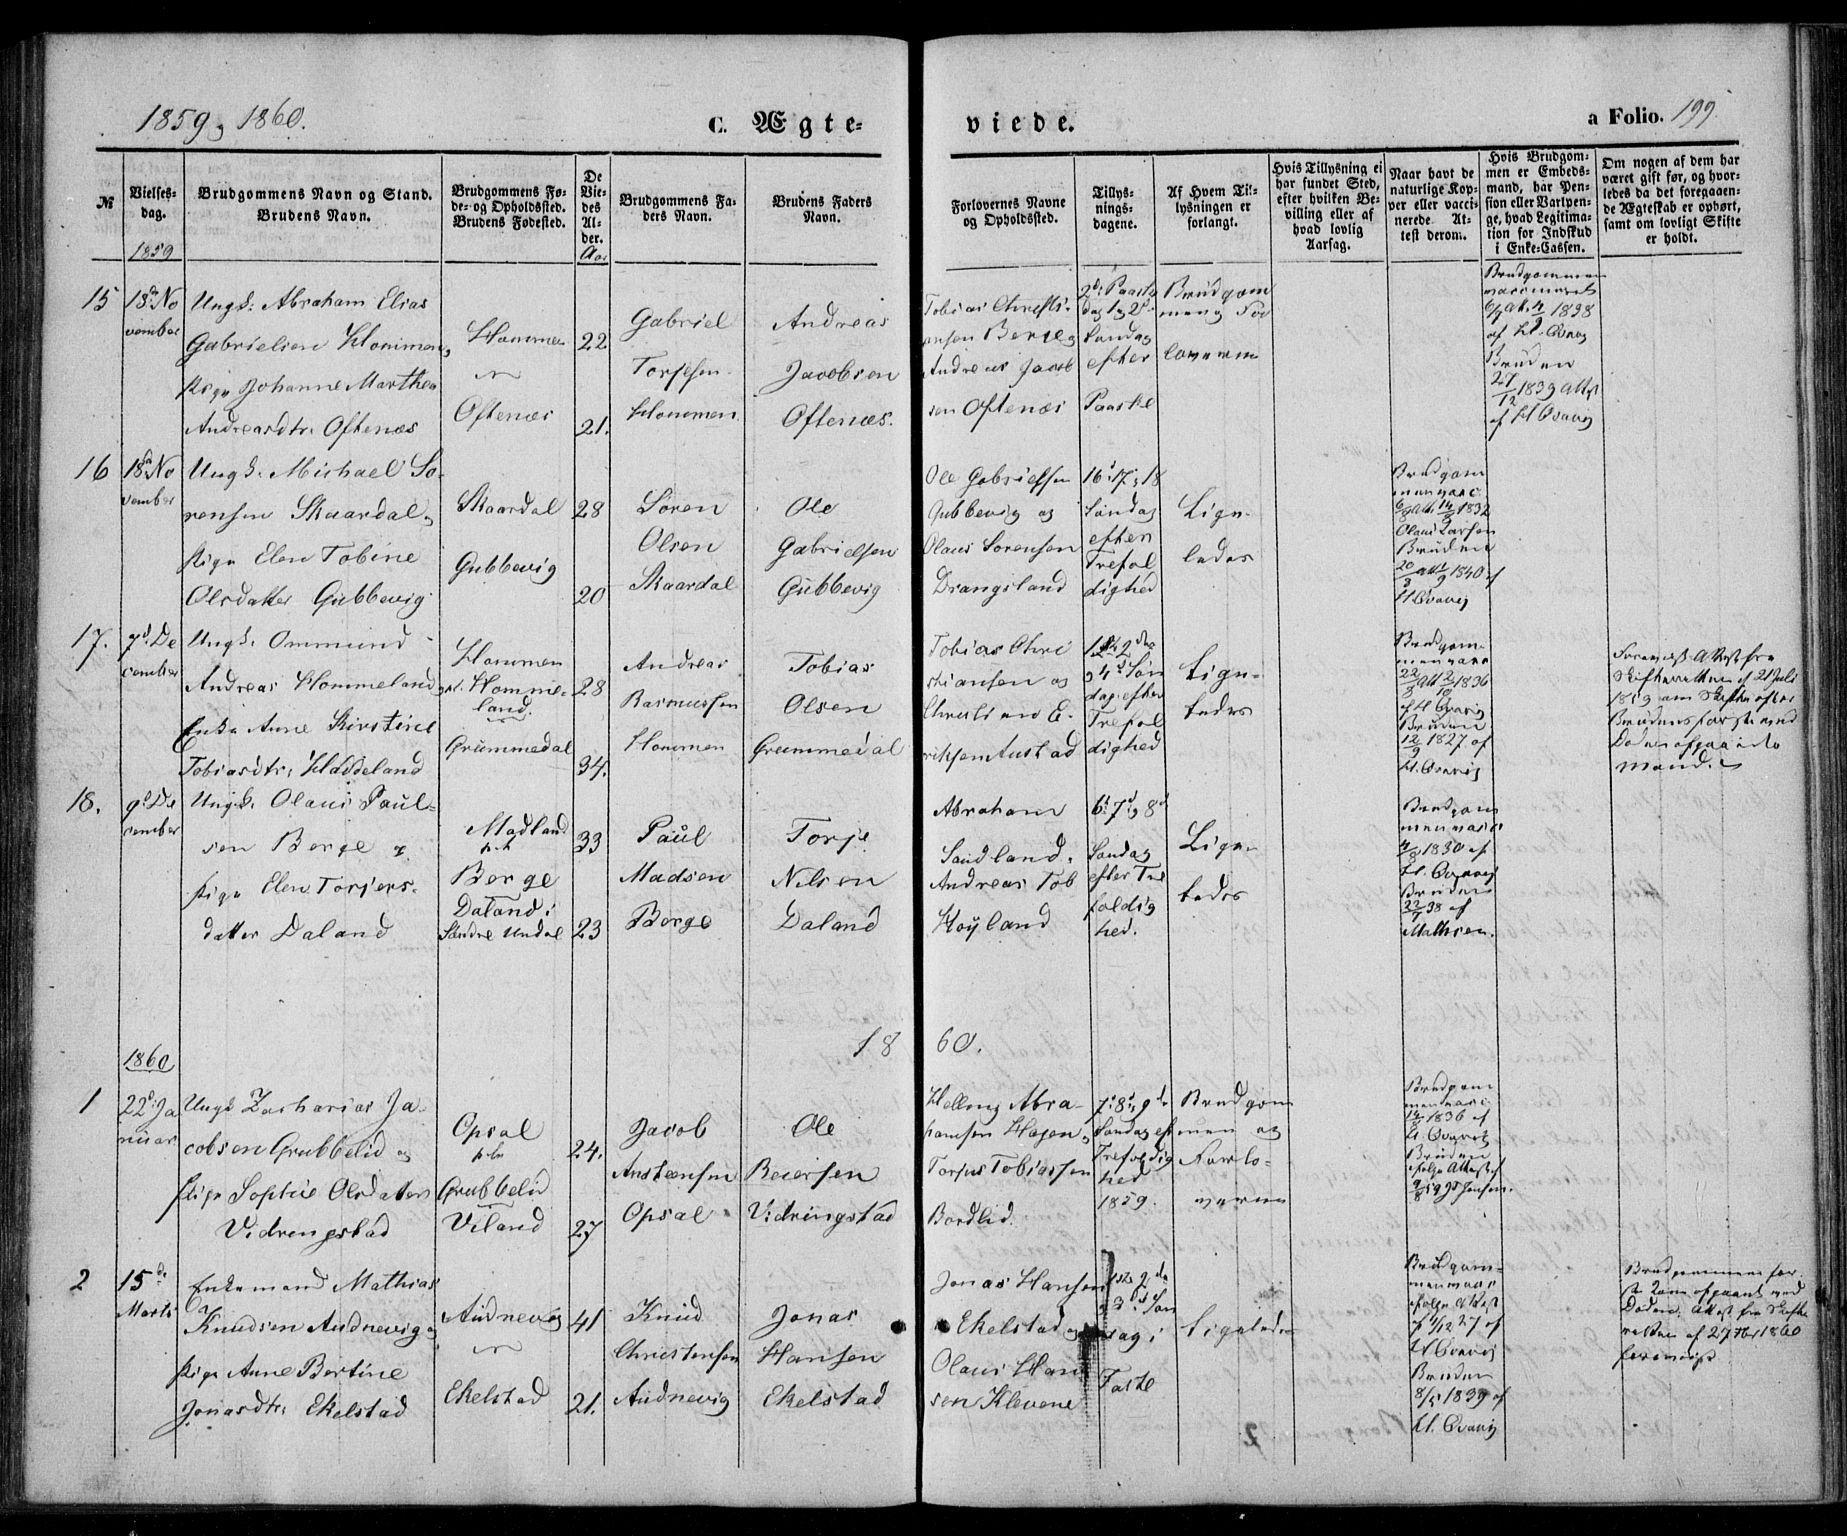 1859 & 1860.
C. Ægte-
viede.
a Folio. 199.
№
Vielses-
dag.
1859
Brudgommens Navn og Stand.
Brudens Navn.
Brudgommens Fø-
de- og Opholdsted.
Brudens Fødested.
De
Vie-
des
Al-
der.
Aar
Brudgommens Fa-
ders Navn.
Brudens Faders
Navn.
Forlovernes Navne
og Opholdsted.
Tillys-
nings-
dagene.
Af Hvem Til-
lysningen er
forlangt.
Hvis Tillysning ei
har fundet Sted,
efter hvilken Be-
villing eller af
hvad lovlig
Aarsag.
Naar havt de
naturlige Kop-
per eller vacci-
nerede. At-
test derom.
Hvis Brudgom-
men er Embeds-
mand, har Pen-
sion eller Vartpen-
ge, hvad Legitima-
tion for Indskud
i Enke-Cassen.
Om nogen af dem har
været gift før, og hvor-
ledes da det foregaaen-
de Ægteskab er ophørt,
samt om lovligt Skifte
er holdt.
15
18de No
vember
Ungk. Abraham Elias
Gabrielsen Hommen,
Pige Johanne Marthea
Andreasdtr. Oftenæs
Hommen
Oftenæs
22
21.
Gabriel
Torjesen
Hommen.
Andreas
Jacobsen
Oftenæs.
Tobias Christi-
ansen Berge,
Andreas Jacob
sen Oftenæs
2d. Paaske
dag 1 & 2d.
Søndag
efter
Paaske
Brudgom
men & For
loveren
Brudgommen
vaccineret
1838
af H. Qvavig
Bruden
27/12 1839 Attst
af H Qvavig
16
18d No
vember
Ungk. Michael So-
rensen Skaardal,
Pige Elen Tobine
Olsdatter Gubbevig
Skaardal
Gubbevig
28
20
Søren
Olsen
Skaardal
Ole
Gabrielsen
Gubbevig
Ole Gabrielsen
Gubbevig og
Olaus Sorensen
Drangsland
16d 17 & 18
Søndag
efter
Trefol
dighed
Lige-
ledes
Brudgom
men vacc.
1832
Olaus Larsen
Bruden
1840 af
H Qvavig
17.
7d. De
cember
Ungk. Ommund
Andreas Hommeland,
Enke Anne Kirstine
Tobiasdtr. Haddeland
Hommen
Homme-
land.
Grummedal
28
34.
Andreas
Rasmussen
Hommen
Tobias
Olsen
Grummedal
Tobias Chri
stiansen og
Christian E-
riksen Austad
1ste 2den
& 4d Søn
dag efter
Trefol
dighed
Lige-
ledes
Brudgom
men vacc
1836
af H Qvavig
Bruden
12/9 1827 af
H. Qvavig
Forevist Attest fra
Skifteretten af 21 Juli
1859 om Skifte efter
Brudens første ved
Døden afgaaede
Mand.
18.
9d De
cember
Ungk. Olaus Paul-
sen Berge &
Pige Elen Torjers-
datter Daland
Madland
Berge
Daland i
Søndre Undal
33
23
Paul
Madsen
Berge
Torje
Nilsen
Daland
Abraham
Sandland.
Andreas Tob
Høyland
6d. 7d. & 8d
Søndag
efter Tre
foldig
hed.
Lige-
ledes
Brudgom
men vacc
1830 af
H. Qvavig
Bruden
38 af
Mathsen.
1860
18
60.
1
22d. Ja
nuar
Ungk Zacharias Ja-
cobsen Grubbelid og
Pige Sophie Olsdatter
Vidrengstad
Opsal
Grubbelid
Viland
24.
27
Jacob
Anstensen
Opsal
Ole
Beiersen
Vidringstad
Helling Abra-
hamsen Hagen,
Torjus Tobiassen
Bordlid.
7d 8d & 9de
Søndag eft
Trefoldig
hed
1859.
Brudgom
men og
Forlo-
verne
Brudgom
men vacc
1836 af
H. Qvavig
Bruden
ifølge Attest af
59 Jensen.
2
15de
Marts
Enkemand Mathias
Knudsen Audnevig,
Pige Anne Bertine
Jonasdtr. Ekelstad
Audnevig
Ekelstad
41
21.
Knud
Christensen
Audnevig
Jonas
Hansen
Ekelstad
Jonas Hansen
Ekelstad
Olaus Han
sen Klevene
1ste 2den
& 3d Søn
dag i
Faste
Ligeledes
Brudgom-
men vacc
ifølge Attest
27 af
H Qvavig
Bruden
8/5 1839 af
H. Qvavig
Brudgommens før
ste Kone afgaaet ved
Døden. Attest fra Skifte
retten af 27 Febr 1860
forevist